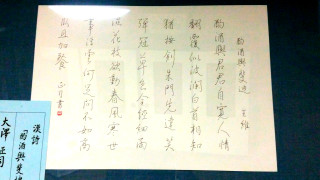 酌酒與裴迪 王維
酌酒與君君自寬人情
翻覆似波瀾白首相知
猶按劍朱門先達笑
彈冠草色全經細雨
濕花枝欲動春風寒世
事浮雲何足問不如高
臥且加餐 正司書
漢詩
酌酒與斐
大澤 正司